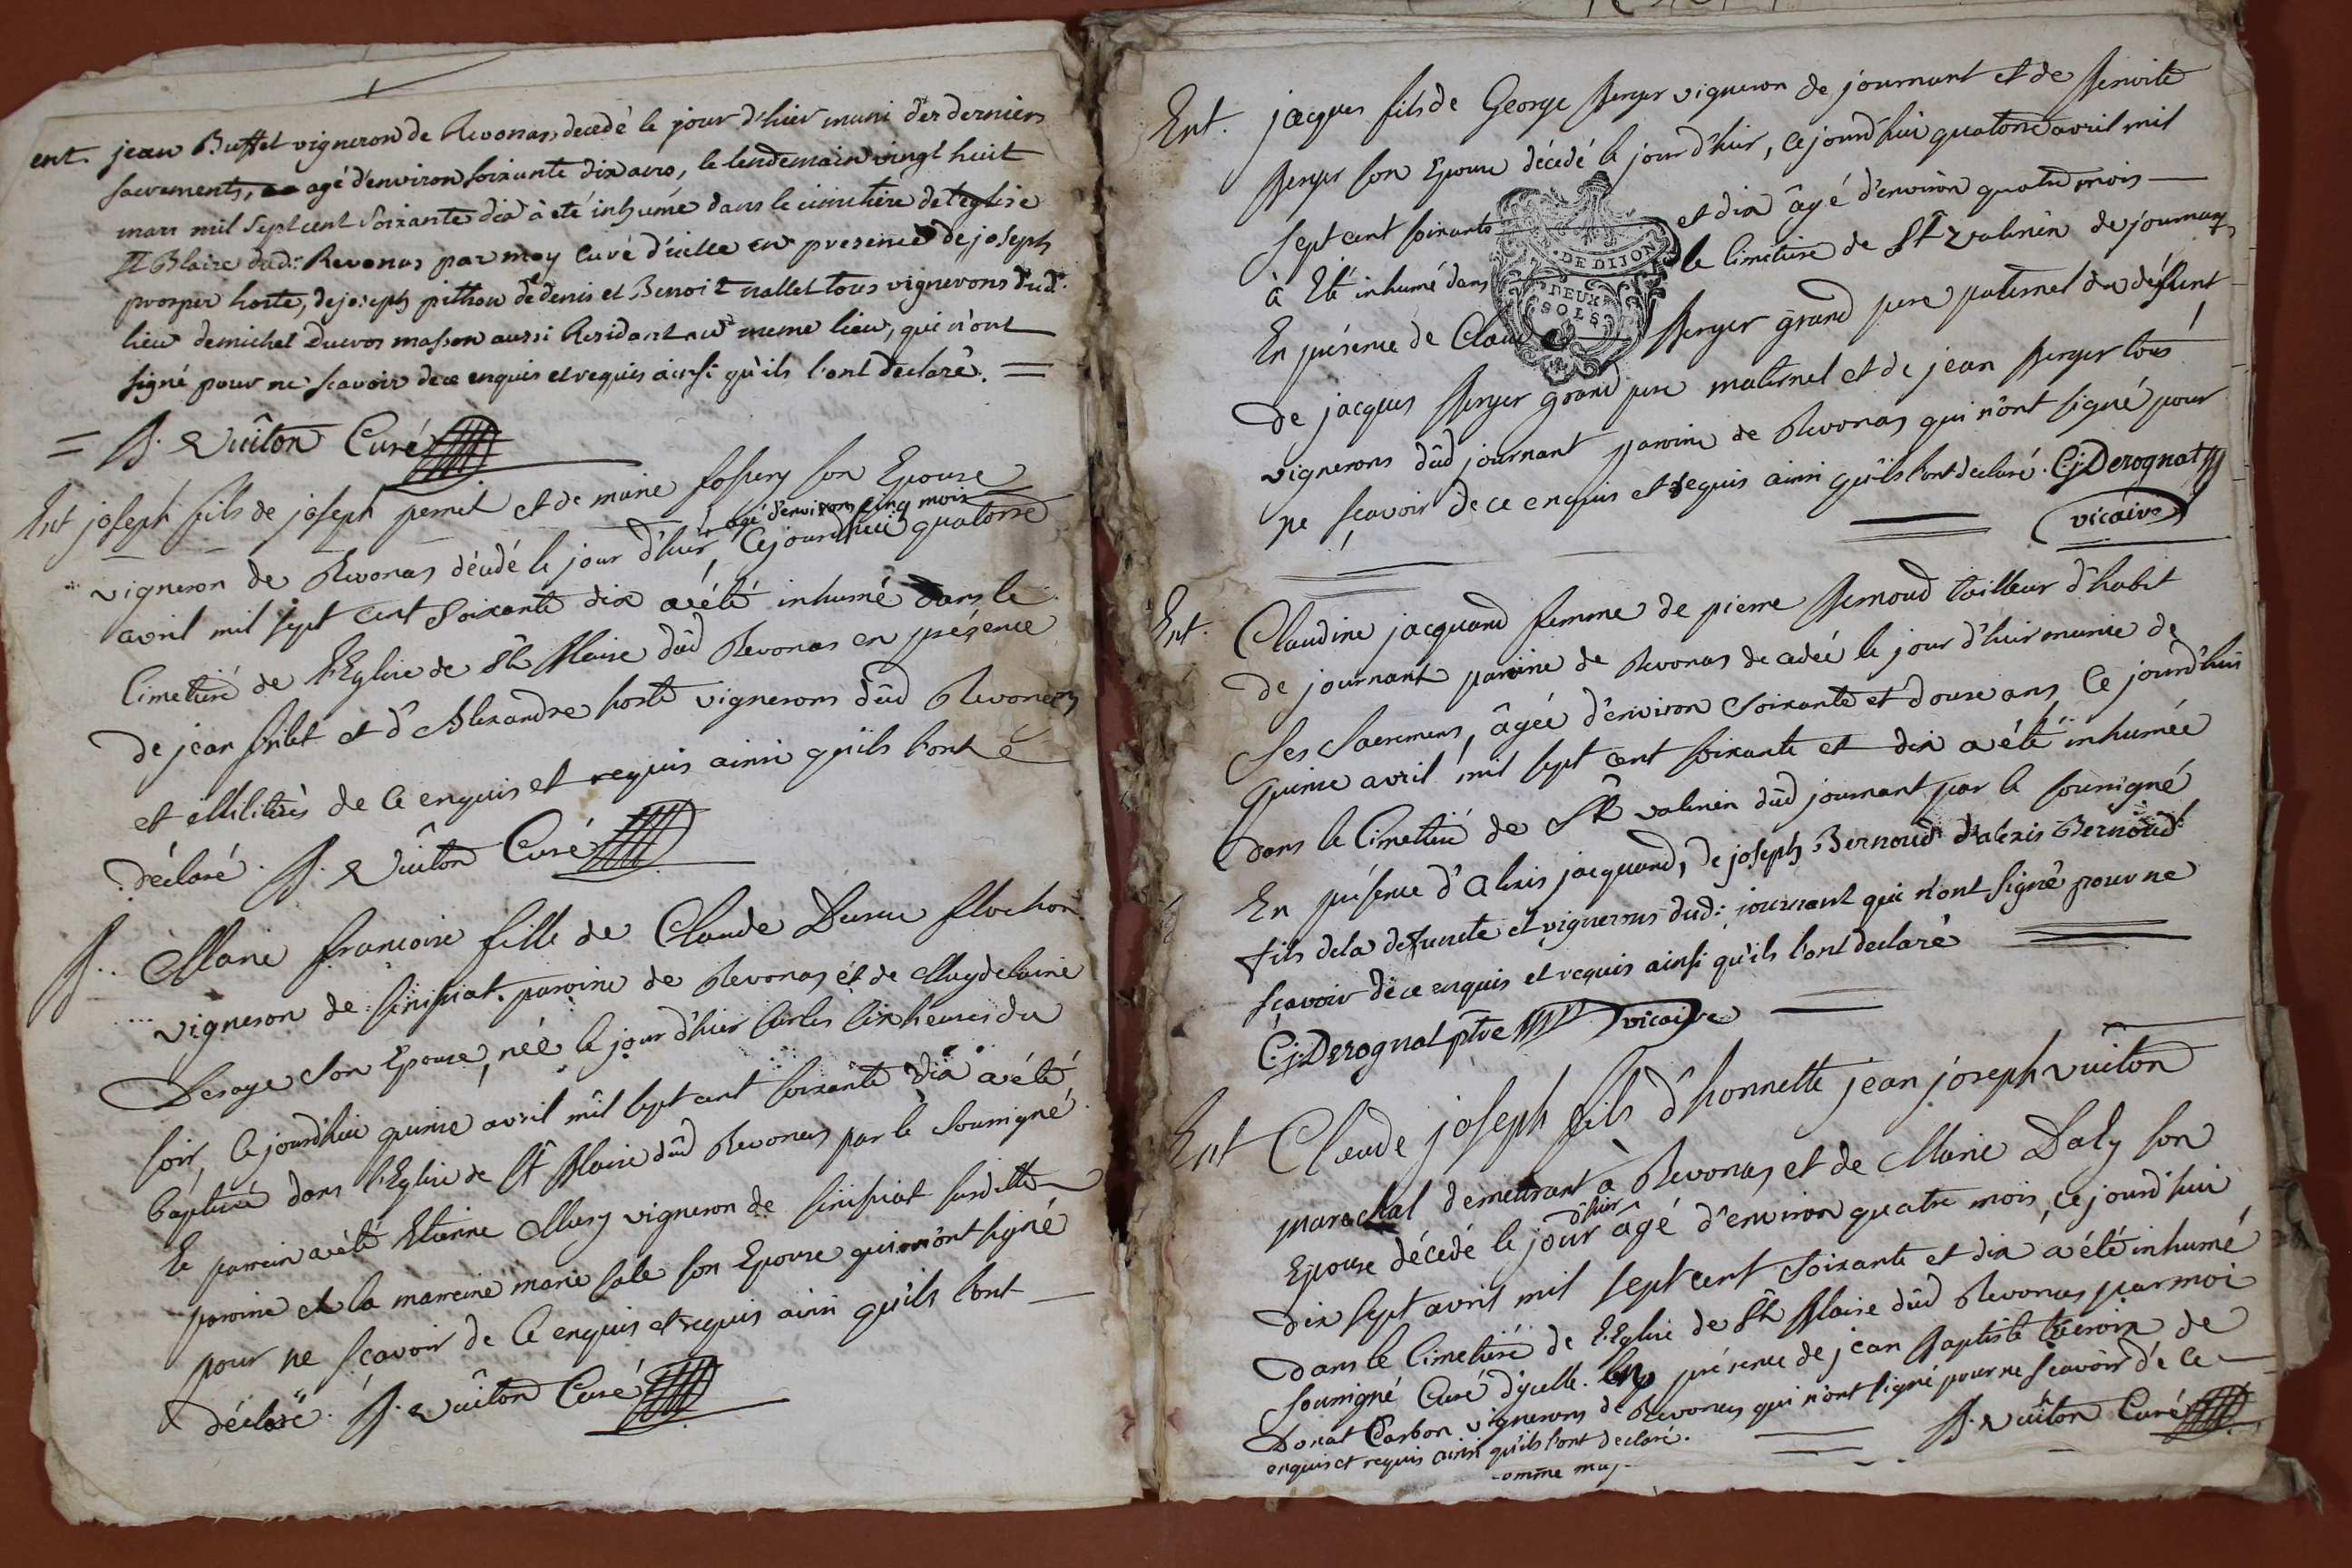 ent. jean Buffet vigneron de Revonas, decedé le jour d'hier muni des derniers
sacrements, agé d'environ soixante dix ans, le lendemain vingt huit
mars mil sept cent soixante dix à eté inhumé dans le cimetière de l'eglise
St Blaise dud: Revonas par moy curé d'icelle en presence de joseph
prosper hoste, de joseph pithou de denis et Benoit nallet tous vignerons dud:
lieu de michel Ducros masson aussi Residant au meme lieu, qui n'ont
signé pour ne scavoir de ce enquis et requis ainsi qu'ils l'ont declaré. =
= B. Vuiton Curé
Ent joseph fils de joseph pernet et de marie son Epouse
agé d'environ cinq mois
vigneron de Revonas décédé le jour d'hier, Cejourd'hui quatorse
avril mil sept cent soixante dix a été inhumé dans le
Cimetiere de l'Eglise de St Blaise dud Revonas en présence
de jean et d'Alexandre hoste vignerons dud Revonas
et Illiterés de Ce enquis et requis ainsi qu'ils l'ont
déclaré. B. Vuiton Curé
B.. Marie francoise fille de Claude
vigneron de parroisse de Revonas et de Magdelaine
Desaye son Epouse, née le jour d'hier sur les six heures du
soir, Ce jourd'hui quinse avril mil sept cent soixante dix a été
baptisée dans l'Eglise de St Blaise dud Revonas par le soussigné
Le parrein a été Etienne Mury vigneron de susditte
parroisse et la marreine marie sale son Epouse qui n'ont signé
pour ne sçavoir de Ce enquis et requis ainsi qu'ils l'ont
déclaré. B. Vuiton Curé
Ent. jacques fils de George Berger vigneron de journant et de Benoite
Berger son Epouse décédé le jour d'hier, Cejourd'hui quatorse avril mil
sept cent soixante et dix âgé d'environ quatre mois
à Eté inhumé dans le Cimetiere de St valerien de journant
DE DIJON
DEUX
SOLS
En présence de Claude Berger grand pere paternel du déffunt
de jacques Berger grand pere maternel et de jean Berger tous
vignerons dud journant paroisse de Revonas qui n'ont signé pour
ne sçavoir de ce enquis et requis ainsi qu'ils l'ont declaré. C:j:Derognat
vicaire
Ent. Claudine jacquand femme de pierre Bernoud tailleur d'habit
de journant paroisse de Revonas decedée le jour d'hier munie de
ses sacremens, âgée d'environ soixante et douse ans, Ce jourd'hui
quinse avril mil sept cent soixante et dix a été inhumée
dans le Cimetiere de St valerien dud journant par le soussigné
En présence d'alexis jacquand, de joseph Bernoud d'alexis Bernoud
fils de la defuncte et vignerons dud: journant qui n'ont signé pour ne
scavoir de ce enquis et requis ainsi qu'ils l'ont declaré
C:j:Derognat ptre vicaire
Ent Claude joseph fils d'honnette jean joseph vuiton
marechal demeurant à Revonas et de Marie Daly son
d'hier
Epouse décedé le jour âgé d'environ quatre mois, ce jourd'hui
dix sept avril mil sept cent soixante et dix a été inhumé
dans le Cimetiere de l'Eglise de St Blaise dud Revonas par moi
soussigné Curé d'ycelle. En présence de jean Baptiste de
Donat Carbon vignerons de Revonas qui n'ont signé pour ne sçavoir de ce
enquis et requis ainsi qu'ils l'ont declaré. B. Vuiton Curé